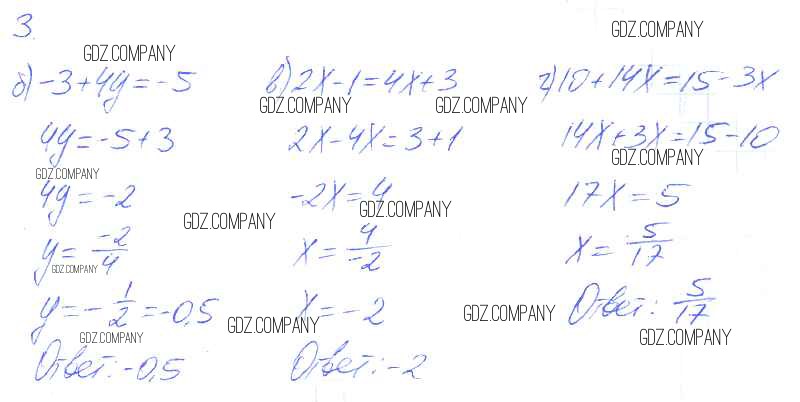 3.
б) -3+4y=-5
4y=-5+3
4y=-2
y=-2/4
y=-1/2=-0,5
Ответ: -0,5
в) 2x-1=4x+3
2x-4x=3+1
-2x=4
x=4/-2
x=-2
Ответ: -2
г) 10+14x=15-3x
14x+3x=15-10
17x=5
x=5/17
Ответ: 5/17
GDZ.COMPANY
GDZ.COMPANY
GDZ.COMPANY
GDZ.COMPANY
GDZ.COMPANY
GDZ.COMPANY
GDZ.COMPANY
GDZ.COMPANY
GDZ.COMPANY
GDZ.COMPANY
GDZ.COMPANY
GDZ.COMPANY
GDZ.COMPANY